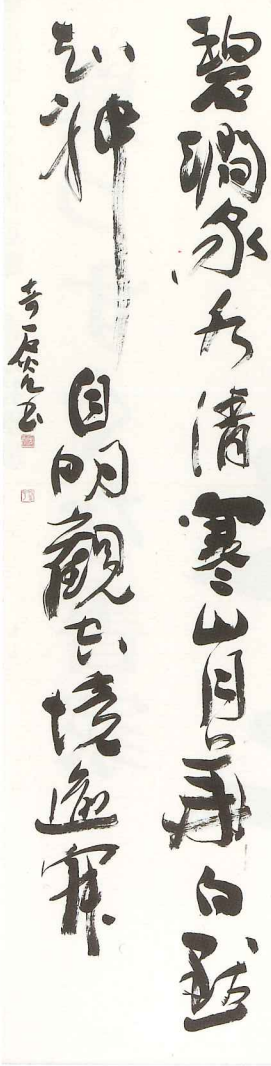 碧澗泉水清寒山月華白默
知神自明觀空境逾寂